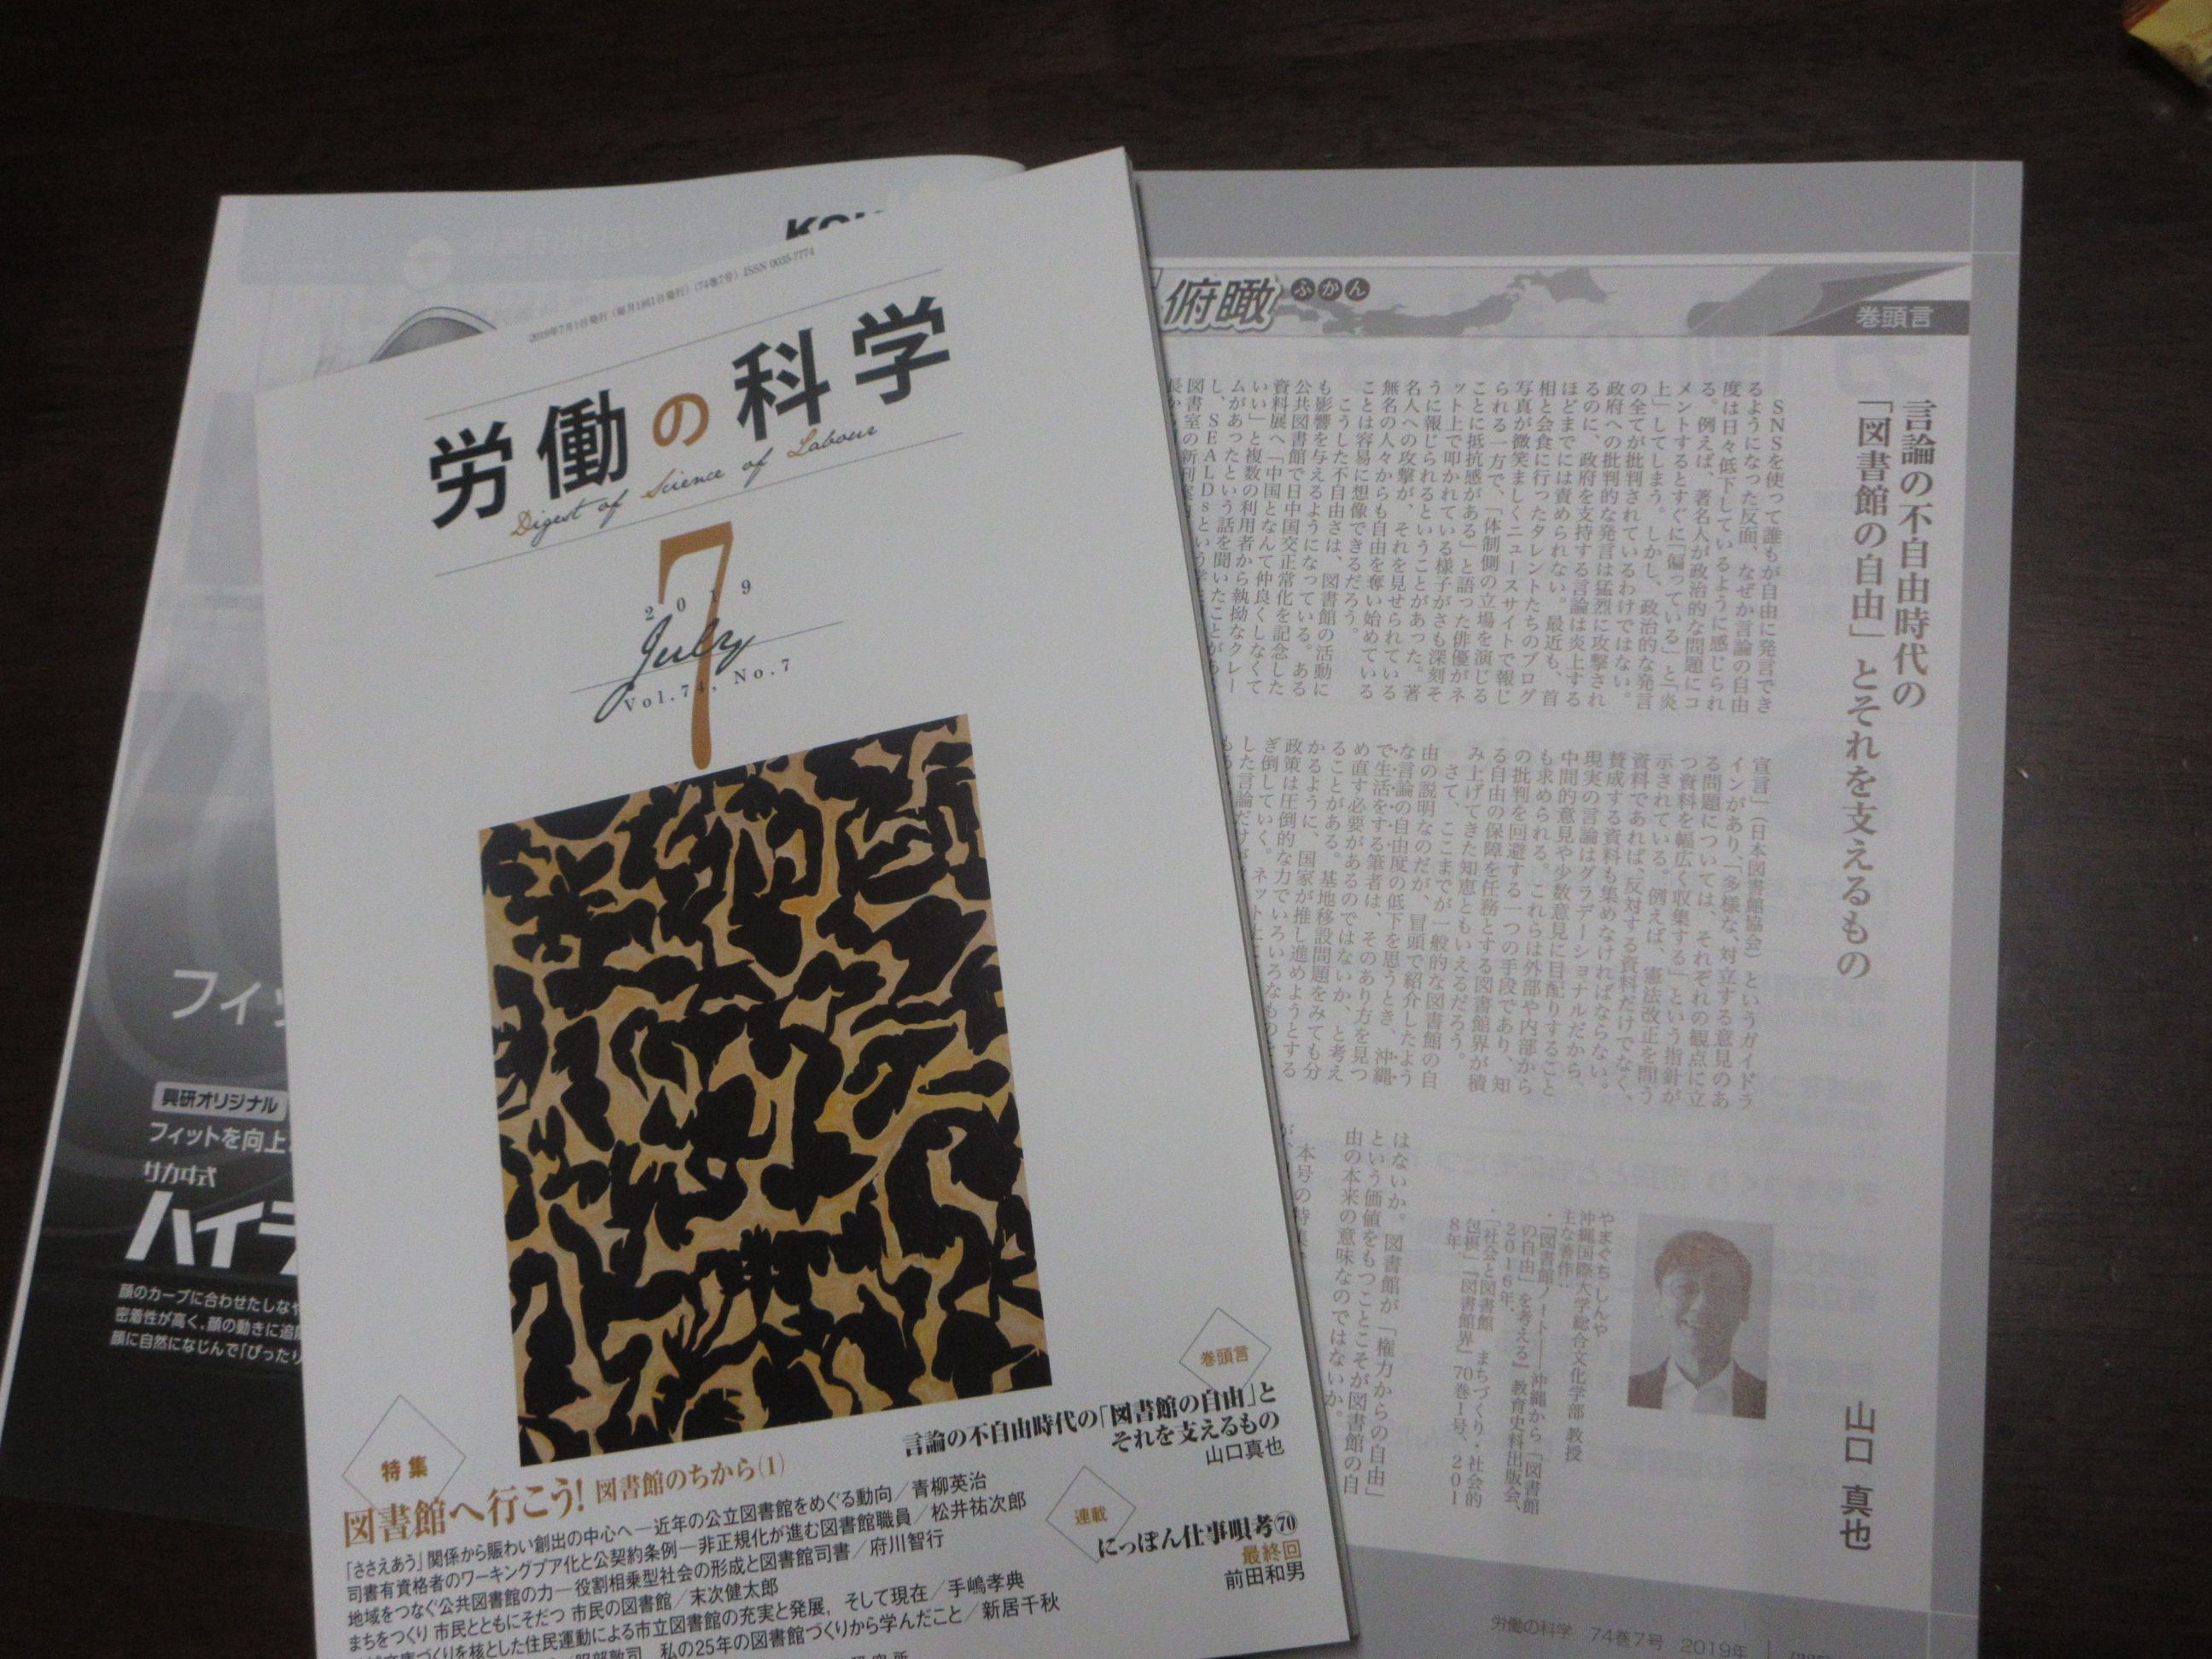 2019年7月1日発行（毎月1回1日発行）（74巻7号）ISSN 0035-7774
労働の科学
Digest of Science of Labour
7
2019
July
Vol.74, No.7
巻頭言
言論の不自由時代の「図書館の自由」と
それを支えるもの
山口真也
特集
図書館へ行こう! 図書館のちから(1)
「ささえあう」関係から賑わい創出の中心へ―近年の公立図書館をめぐる動向／青柳英治
司書有資格者のワーキングプア化と公契約条例―非正規化が進む図書館職員／松井祐次郎
地域をつなぐ公共図書館の力―役割相乗型社会の形成と図書館司書／府川智行
まちをつくり 市民とともにそだつ 市民の図書館／末次健太郎
づくりを核とした住民運動による市立図書館の充実と発展，そして現在／手嶋孝典
私の25年の図書館づくりから学んだこと／新居千秋
連載
にっぽん仕事唄考70
最終回
前田和男
フィッ
興研オリジナル
フィットを向上
サカヰ式
ハイラ
顔のカーブに合わせたしなや
密着性が高く、顔の動きに追
顔に自然になじんで「ぴったり
俯瞰
ふかん
巻頭言
言論の不自由時代の
「図書館の自由」とそれを支えるもの
山口 真也
SNSを使って誰もが自由に発言でき
るようになった反面、なぜか言論の自由
度は日々低下しているように感じられ
る。例えば、著名人が政治的な問題にコ
メントするとすぐに「偏っている」と「炎
上」してしまう。しかし、政治的な発言
の全てが批判されているわけではない。
政府への批判的な発言は猛烈に攻撃され
るのに、政府を支持する言論は炎上する
ほどまでには責められない。最近も、首
相と会食に行ったタレントたちのブログ
写真が微笑ましくニュースサイトで報じ
られる一方で、「体制側の立場を演じる
ことに抵抗感がある」と語った俳優がネ
ット上で叩かれている様子がさも深刻そ
うに報じられるということがあった。著
名人への攻撃が、それを見せられている
無名の人々からも自由を奪い始めている
ことは容易に想像できるだろう。
こうした不自由さは、図書館の活動に
も影響を与えるようになっている。ある
公共図書館で日中国交正常化を記念した
資料展へ「中国となんて仲良くしなくて
いい」と複数の利用者から執拗なクレー
ムがあったという話を聞いたことがあ
し、SEALDsという学
図書室の新刊案
宣言」（日本図書館協会）というガイドラ
インがあり、「多様な、対立する意見のあ
る問題については、それぞれの観点に立
つ資料を幅広く収集する」という指針が
示されている。例えば、憲法改正を問う
資料であれば、反対する資料だけでなく、
賛成する資料も集めなければならない。
現実の言論はグラデーショナルだから、
中間的意見や少数意見に目配りすること
も求められる。これらは外部や内部から
の批判を回避する一つの手段であり、知
る自由の保障を任務とする図書館界が積
み上げてきた知恵ともいえるだろう。
さて、ここまでが一般的な図書館の自
由の説明なのだが、冒頭で紹介したよう
な言論の自由度の低下を思うとき、沖縄
で生活をする筆者は、そのあり方を見つ
め直す必要があるのではないか、と考え
ることがある。基地移設問題をみても分
かるように、国家が推し進めようとする
政策は圧倒的な力でいろいろなものを
ぎ倒していく。ネット上
した言論だけが
はないか。図書館が「権力からの自由」
という価値をもつことこそが図書館の自
由の本来の意味なのではないか。
本号の特集
やまぐち しんや
沖縄国際大学総合文化学部 教授
主な著作：
・『図書館ノート――沖縄から「図書館
の自由」を考える』教育史料出版会、
2016年.
・「社会と図書館 まちづくり・社会的
包摂」『図書館界』70巻1号、201
8年.
労働の科学 74巻7号 2019年